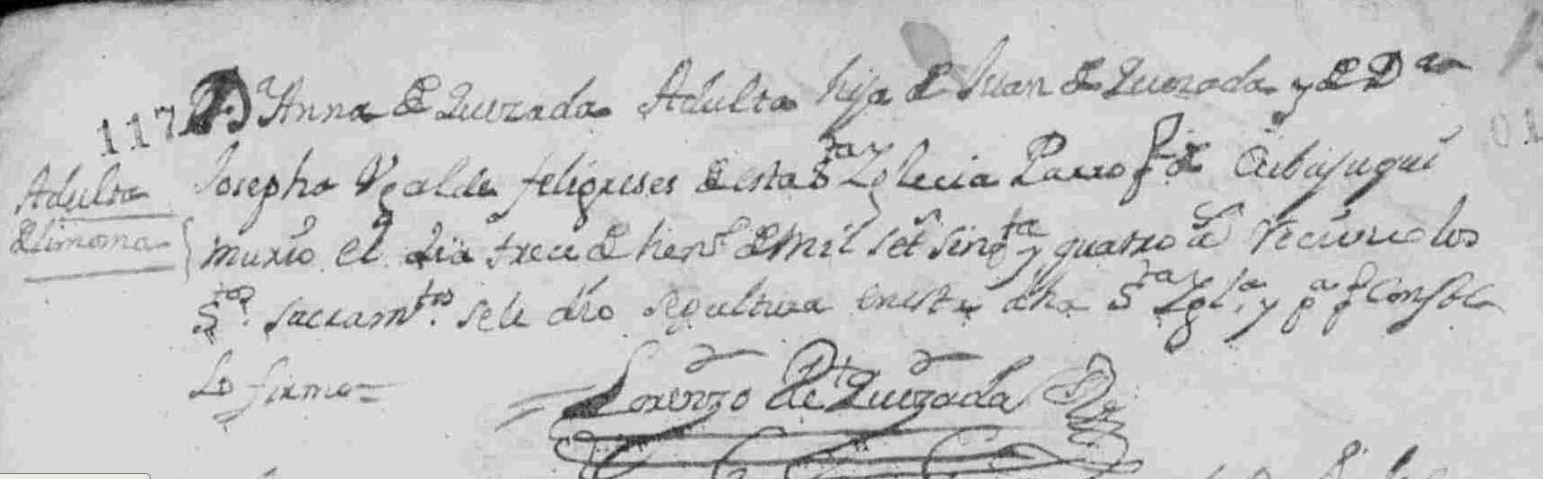 117 Dª Anna de Quezada Adulta hija de Juan de Quezada y de Dña
Adulta Josepha Vgalde feligreses de esta Sta Yglecia Parroql de Cubujuquí
de limosna murió el dia trece de henº de mil setsinqta y quatro as reciuio los
Stos sacramtos se le dio sepultura en esta dha Sta Yglª y pª q conste
Lo firmo =
Lorenzo Dte Quezada